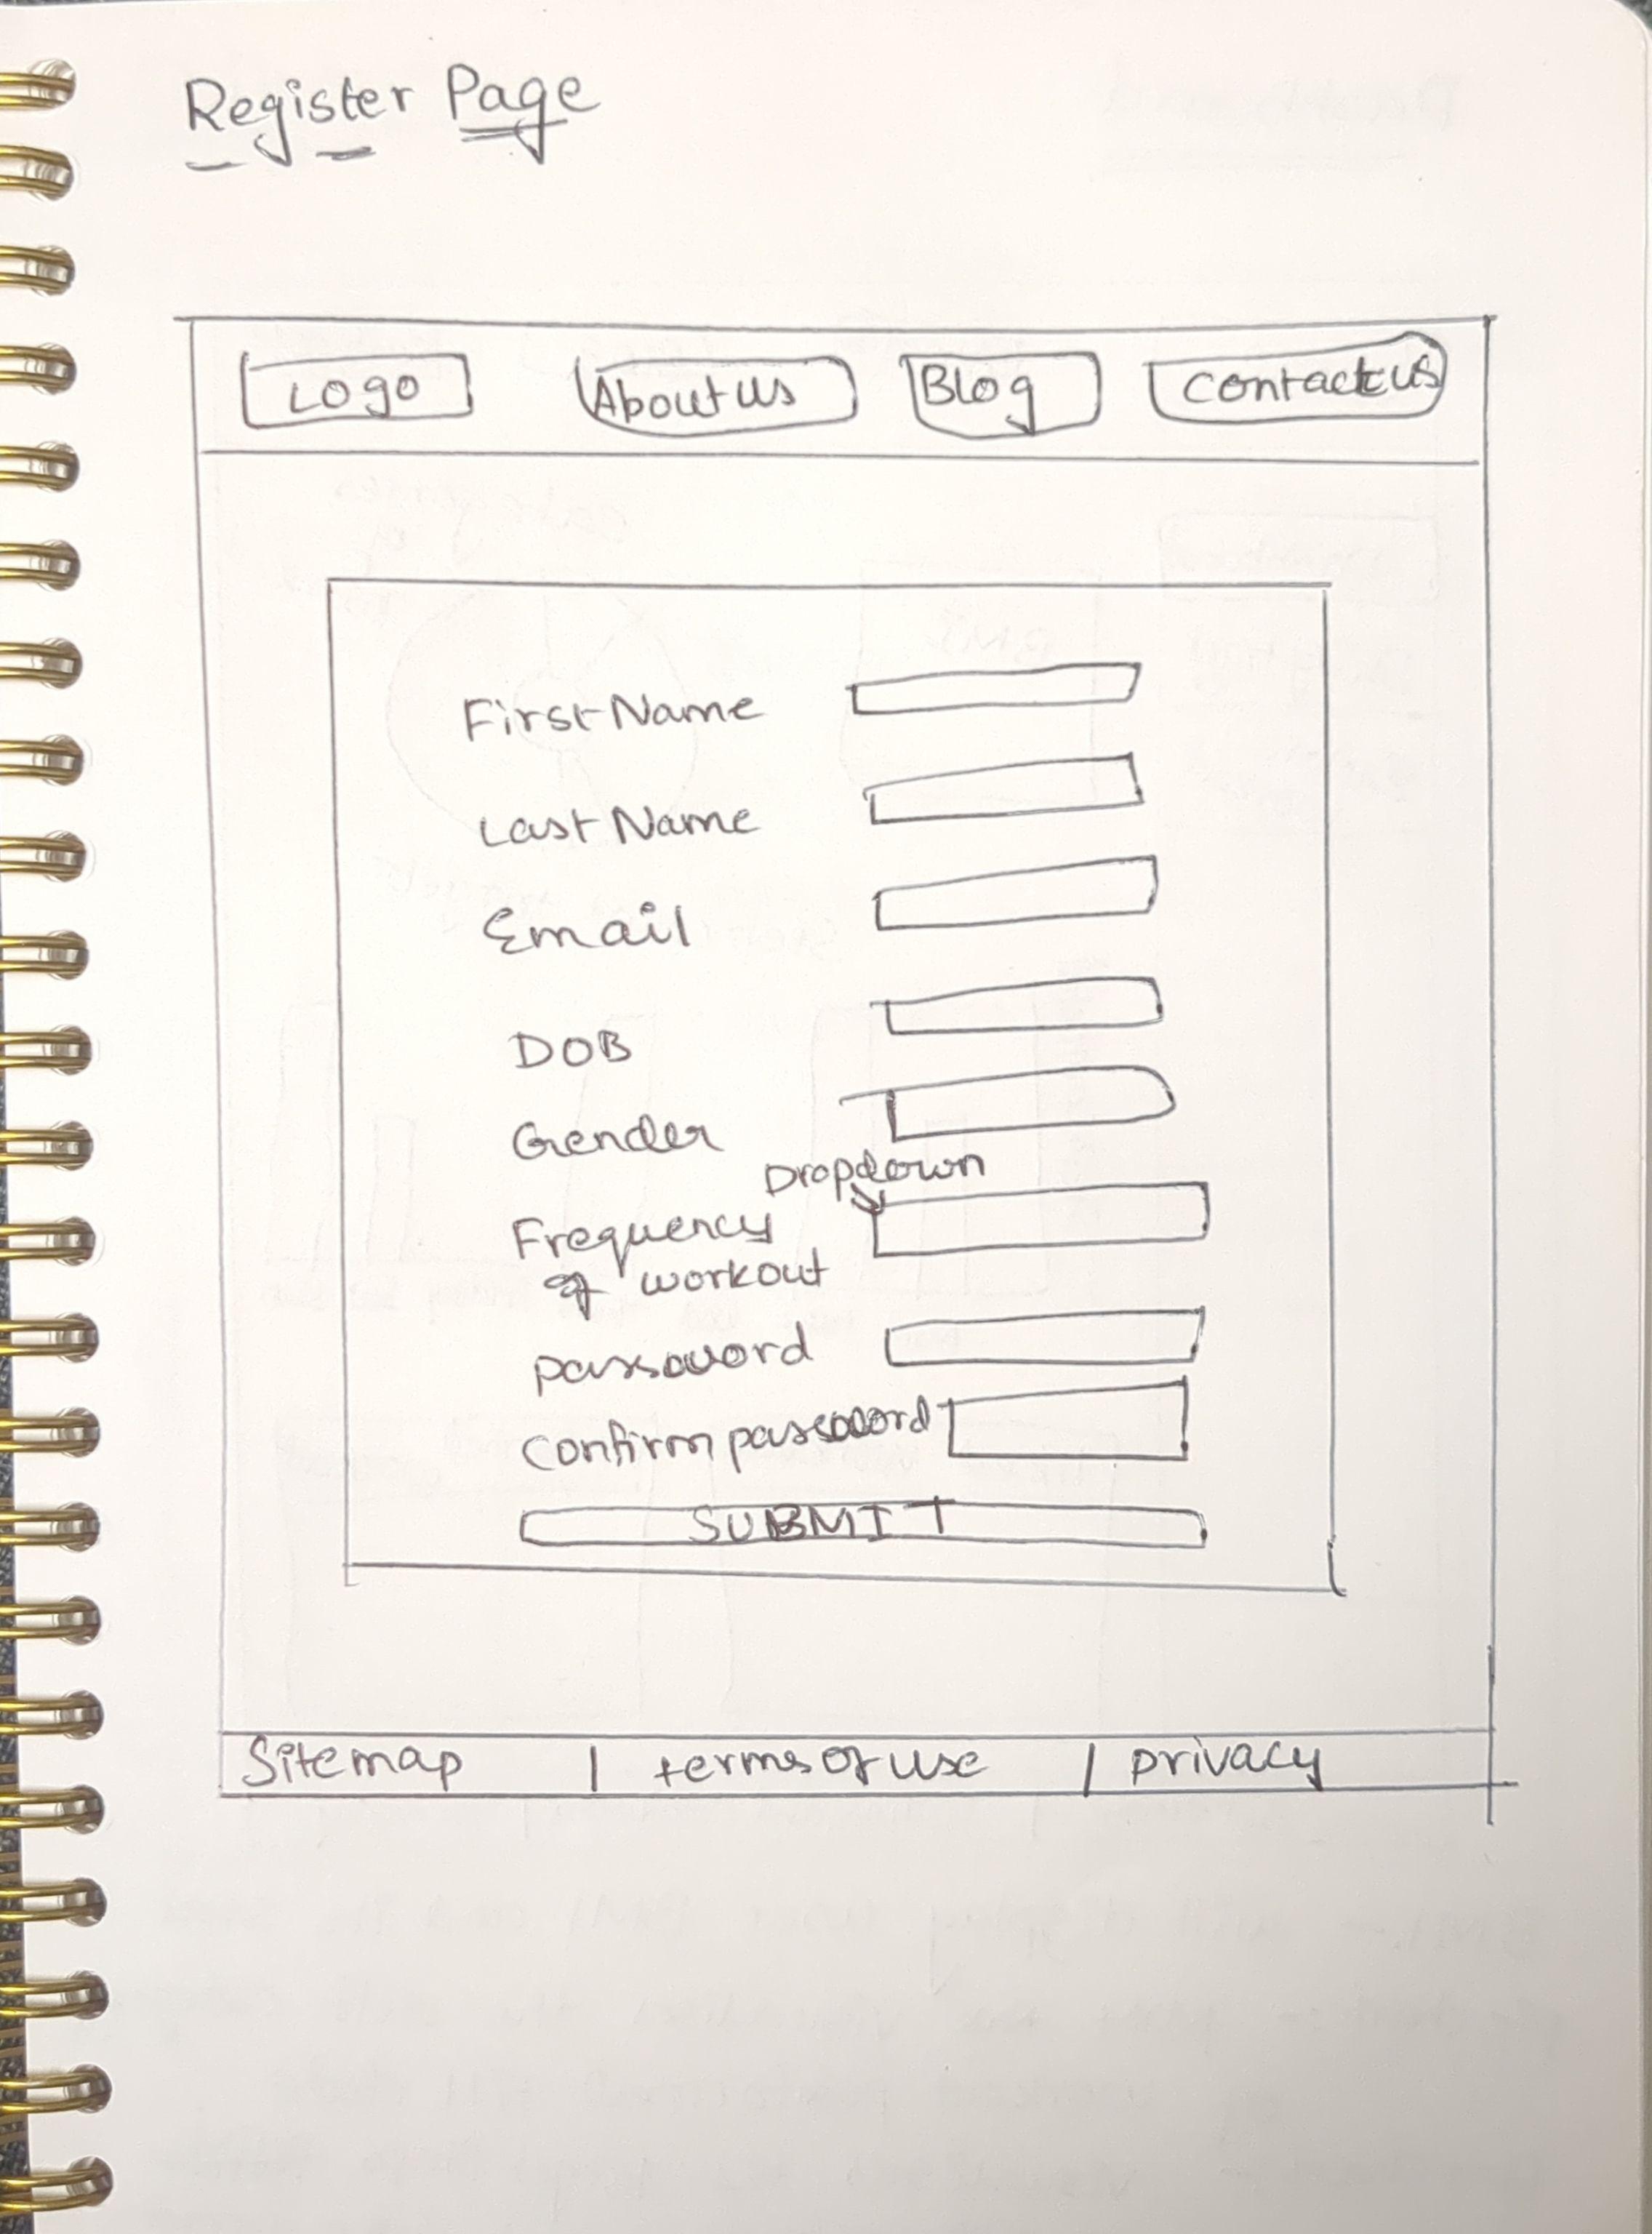 Register Page
Logo
About us
Blog
Contact us
First Name
Last Name
Email
DOB
Gender
Dropdown
Frequency
of workout
password
Confirm password
SUBMIT
Sitemap | terms of use | privacy